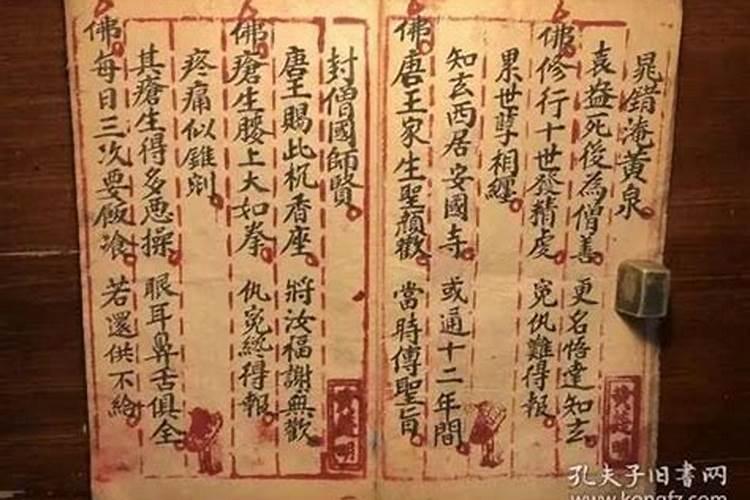 晁錯淹黃泉
袁益死後為僧善 更名悟達知玄
佛 修行十世發精虔 冤仇難得報
累世孽相纏
知玄西居安國寺 或通十二年間
佛 唐王家生聖顏歡 當時傳聖旨
封僧國師賢
唐王賜此杌香座 將汝福謝無歡
佛 瘡生腰上大如拳 仇冤終得報
疼痛似錐剜
其瘡生得多悪操 眼耳鼻舌俱全
佛 每日三次要飯飡 若還供不給
孔夫子旧书网